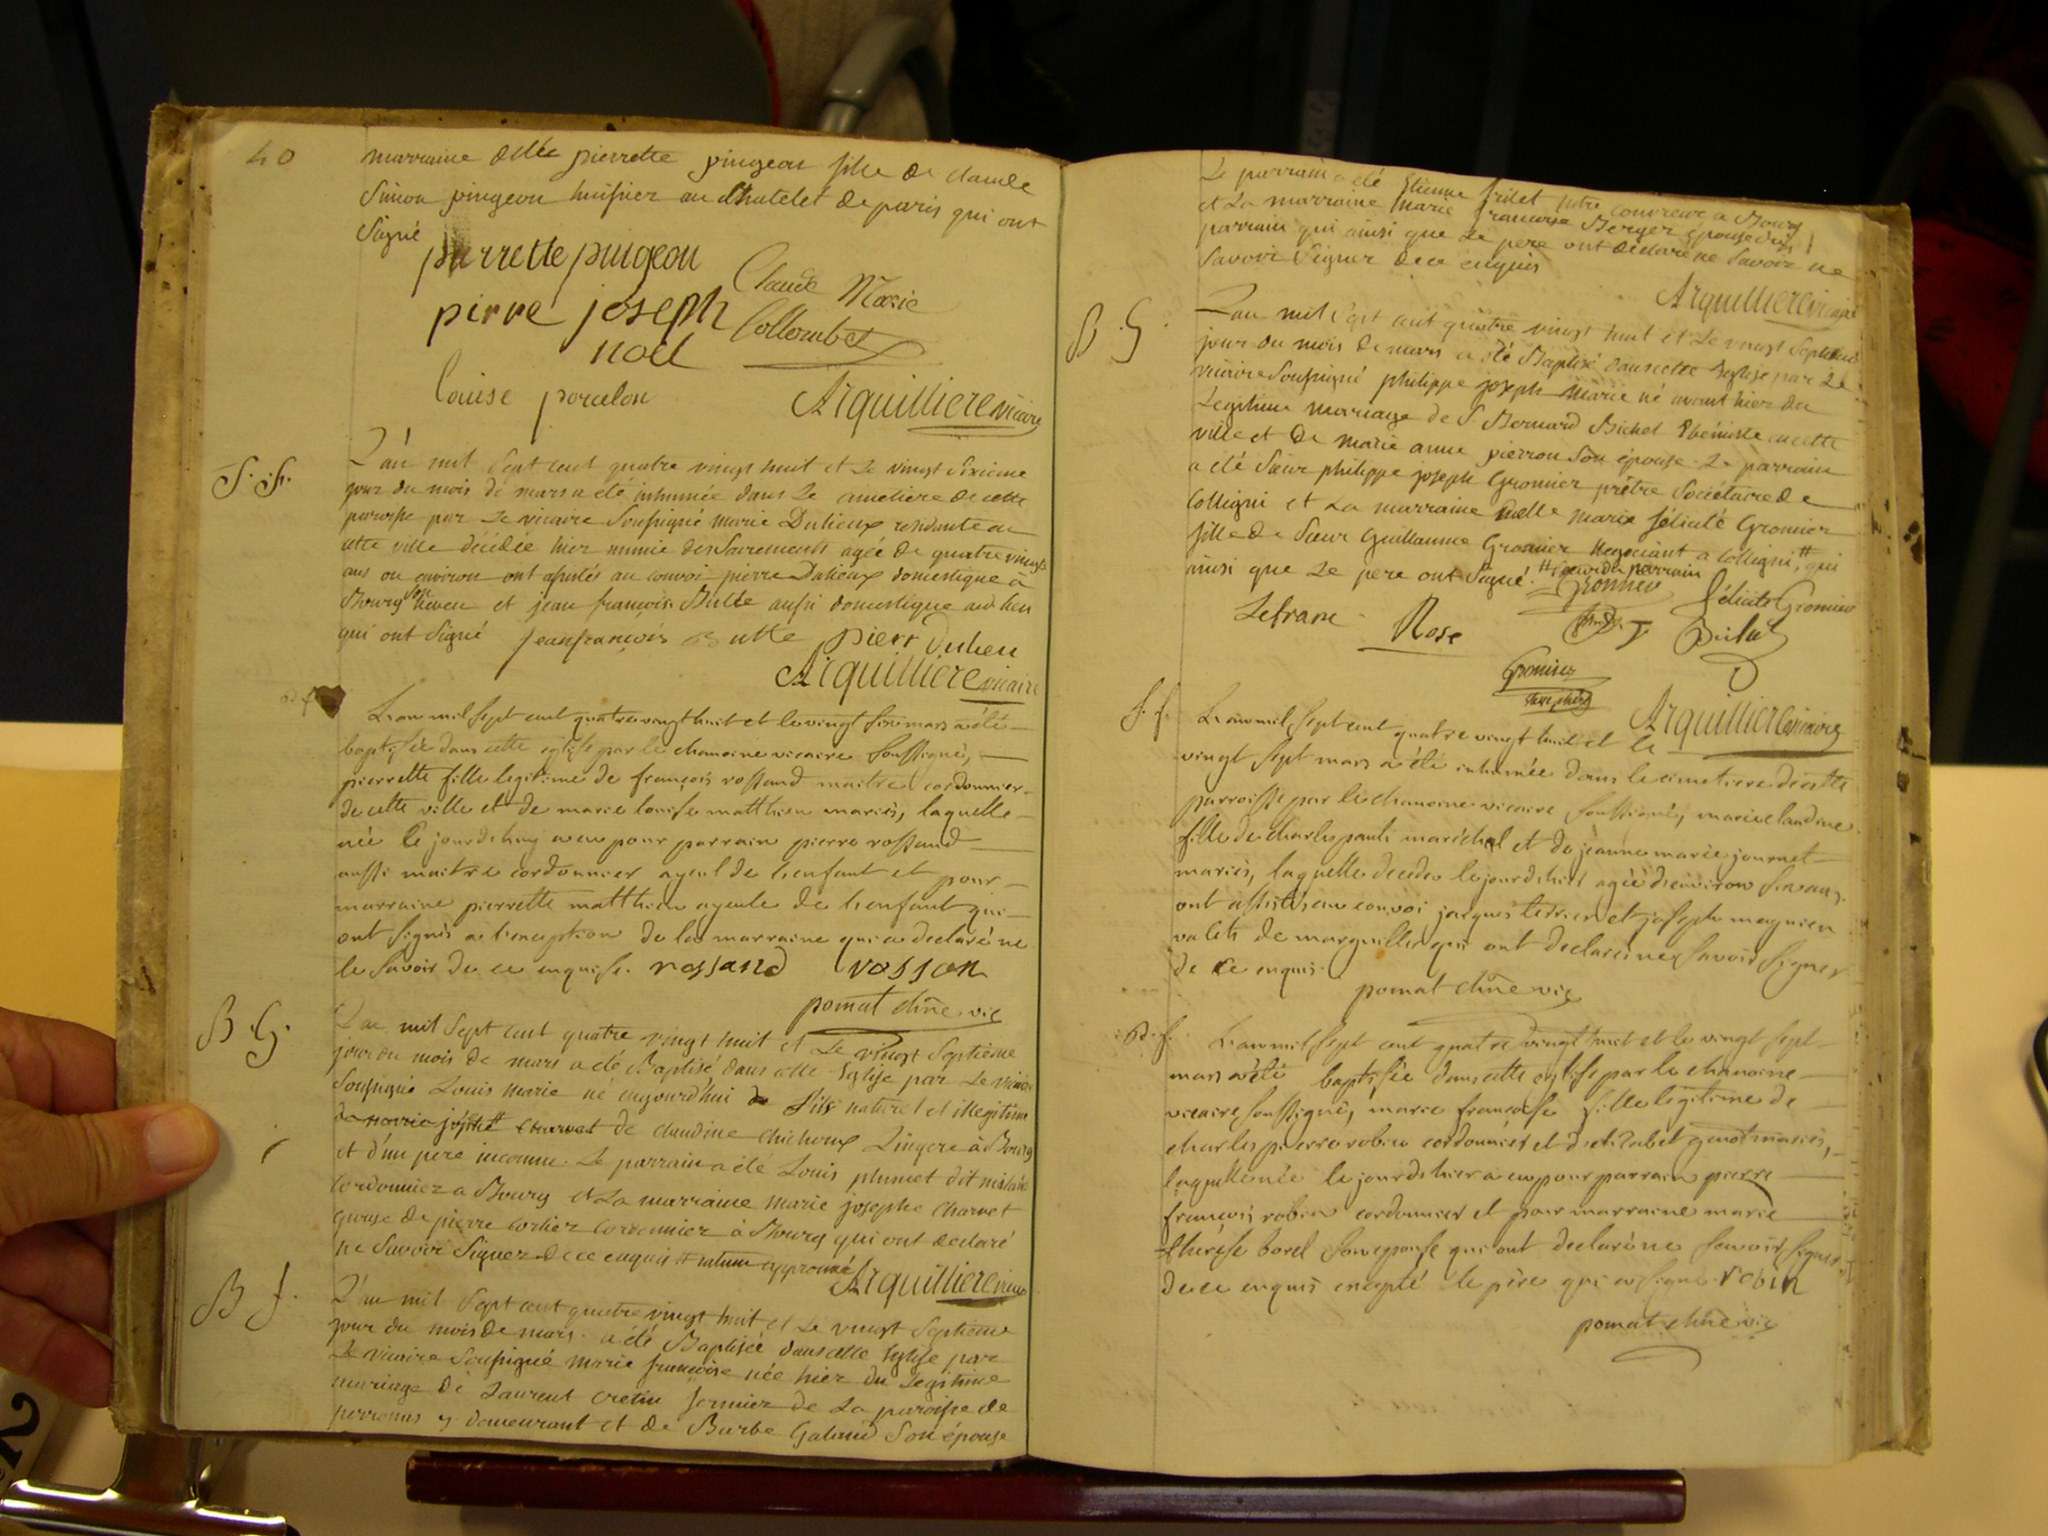 40
marraine dlle pierrette pingeon fille de claude
Simon pingeon huissier au Chatelet de paris qui ont
Signé
pierrette pingeon
Claude Marie
pierre joseph
Collombet
noël
Louise porcelon
Arquilliere vicaire
S. f.
L'an mil Sept cent quatre vingt huit et Le vingt Sixieme
jour du mois de mars a été inhumée dans Le cimetiere de cette
paroisse par Le vicaire Soussigné marie Dulieux residante en
cette ville décédée hier munie des Sacrements agée de quatre vingt
ans ou environ ont assistés au convoi pierre Dulieux domestique à
Bourg son neveu et jean françois Butte aussi domestique aud lieu
qui ont signé jeanfrançois Butte pierr Dulieu
Arquilliere vicaire
B. f.
L'an mil sept cent quatre vingt huit et le vingt six mars a été
baptisée dans cette église par le chanoine vicaire soussigné,
pierrette fille legitime de françois rossand maitre cordonnier
de cette ville et de marie louise matthieu mariés, laquelle
née le jourdhuy a eu pour parrain pierre rossand
aussi maitre cordonnier ayeul de l'enfant et pour
marraine pierrette matthieu ayeule de l'enfant qui
ont signés a l'exception de la marraine qui a declaré ne
le savoir de ce enquise. rossand rossan
pomat chne vic
B. G.
L'an mil Sept cent quatre vingt huit et Le vingt Septieme
jour du mois de mars a été Baptisé dans cette Eglise par Le vicaire
Soussigné Louis Marie né aujourd'hui de fils naturel et illegitime
de marie josephte charvet de claudine chichoux Lingere à Bourg
et d'un pere inconnu. Le parrain a été Louis plumet dit
cordonnier a Bourg et La marraine marie josephe charvet
epouse de pierre cordonnier à Bourg qui ont declaré
ne Savoir Signer de ce enquis approuvé
Arquilliere vicaire
B f.
L'an mil Sept cent quatre vingt huit et Le vingt Septieme
jour du mois de mars a été Baptisée dans cette Eglise par
Le vicaire Soussigné marie françoise née hier du Legitime
mariage de Laurent cretin fermier de La paroisse de
perronas y demeurant et de Barbe Galand Son épouse
Le parrain a été Etienne frilet couvreur a Bourg
et La marraine marie francoise Berger épouse dudit
parrain qui ainsi que Le pere ont declaré ne Savoir ne
Savoir Signer de ce enquis
Arquilliere vicaire
B. G.
L'an mil Sept cent quatre vingt huit et Le vingt Septieme
jour du mois de mars a été Baptisé dans cette Eglise par Le
vicaire Soussigné philippe joseph marie né avant hier du
Legitime mariage de S. Bernard Bichel Ebéniste en cette
ville et de marie anne pierron Son épouse. Le parrain
a été Sieur philippe joseph Gromier prêtre Sociétaire de
Colligni et La marraine melle marie félicité Gromier
fille de Sieur Guillaume Gromier Negociant a Colligni,# qui
ainsi que Le pere ont Signé. # du parrain
Gromier félicité Gromier
Lefranc Rose
Gromier
Arquilliere vicaire
S. f.
L'an mil sept cent quatre vingt huit et le
vingt sept mars a été inhumée dans le cimetiere de cette
parroisse par le chanoine vicaire soussigné, marie claudine
fille de charles pauli maréchal et de jeanne marie journet
mariés, laquelle decedée le jourdhier agée d'environ six ans.
ont assistés au convoi jacques terrier et joseph magnien
valets de marguillier qui ont declarés ne savoir signer
de ce enquis.
pomat chne vic
B. f.
L'an mil sept cent quatre vingt huit et le vingt sept
mars a été baptisée dans cette eglise par le chanoine
vicaire soussigné, marie francoise fille legitime de
charles pierre robin cordonnier et d'elizabet genot mariés,
laquelle née le jourdhier a eu pour parrain pierre
françois robin cordonnier et pour marraine marie
thérèse borel son epouse qui ont declaré ne savoir signer
de ce enquis excepté le père qui a signé. robin
pomat chne vic